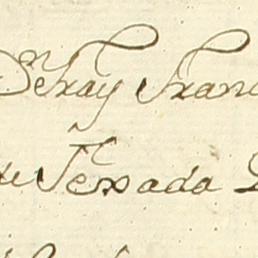 Defray Fran
Texada